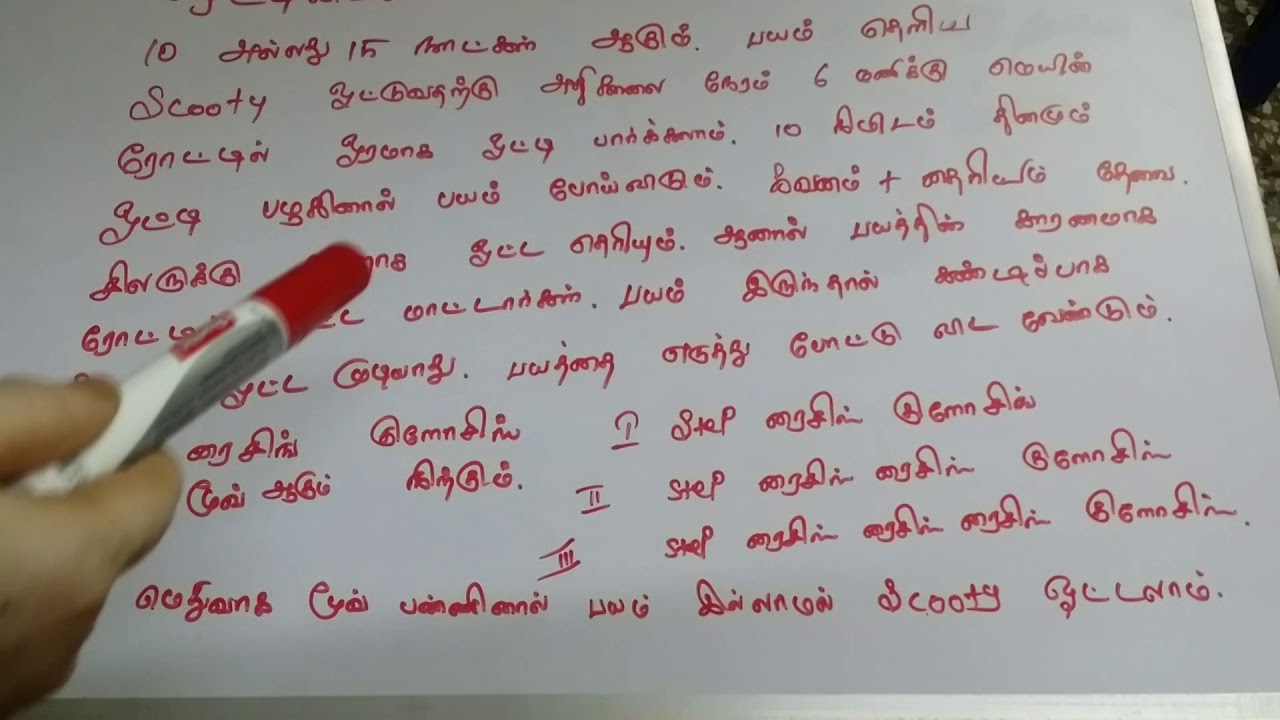 10 அல்லது 15 நாட்கள் ஆகும். பயம் தெளிய
Scooty ஓட்டுவதற்கு அதிகாலை நேரம் 6 மணிக்கு மெயின்
ரோட்டில் ஓரமாக ஓட்டி பார்க்கலாம். 10 நிமிடம் தினமும்
ஓட்டி பழகினால் பயம் போய்விடும். கவனம் + தைரியம் தேவை.
சிலருக்கு ஓட்ட தெரியும். ஆனால் பயத்தின் காரணமாக
மாட்டார்கள். பயம் இருந்தால் கண்டிப்பாக
ஓட்ட முடியாது. பயத்தை எடுத்து போட்டு விட வேண்டும்.
ரைசிங் குளோசிங் I Step ரைசிங் குளோசிங்
மூவ் ஆகும் நிற்கும். II step ரைசிங் ரைசிங் குளோசிங்
III step ரைசிங் ரைசிங் ரைசிங் குளோசிங்.
மெதுவாக மூவ் பண்ணினால் பயம் இல்லாமல் Scooty ஓட்டலாம்.